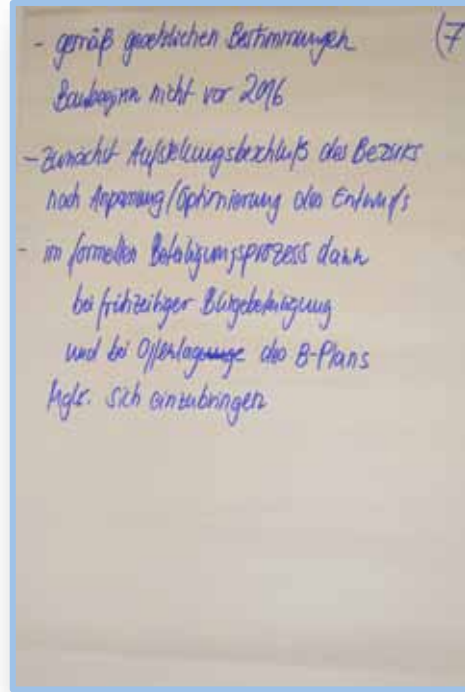 - gemäß gesetzlichen Bestimmungen (7
Baubeginn nicht vor 2016
- Zunächst Aufstellungsbeschluß des Bezirks
nach Anpassung/Optimierung des Entwurfs
- im formellen Beteiligungsprozess dann
bei frühzeitiger Bürgerbeteiligung
und bei Offenlage des B-Plans
Mglk. sich einzubringen